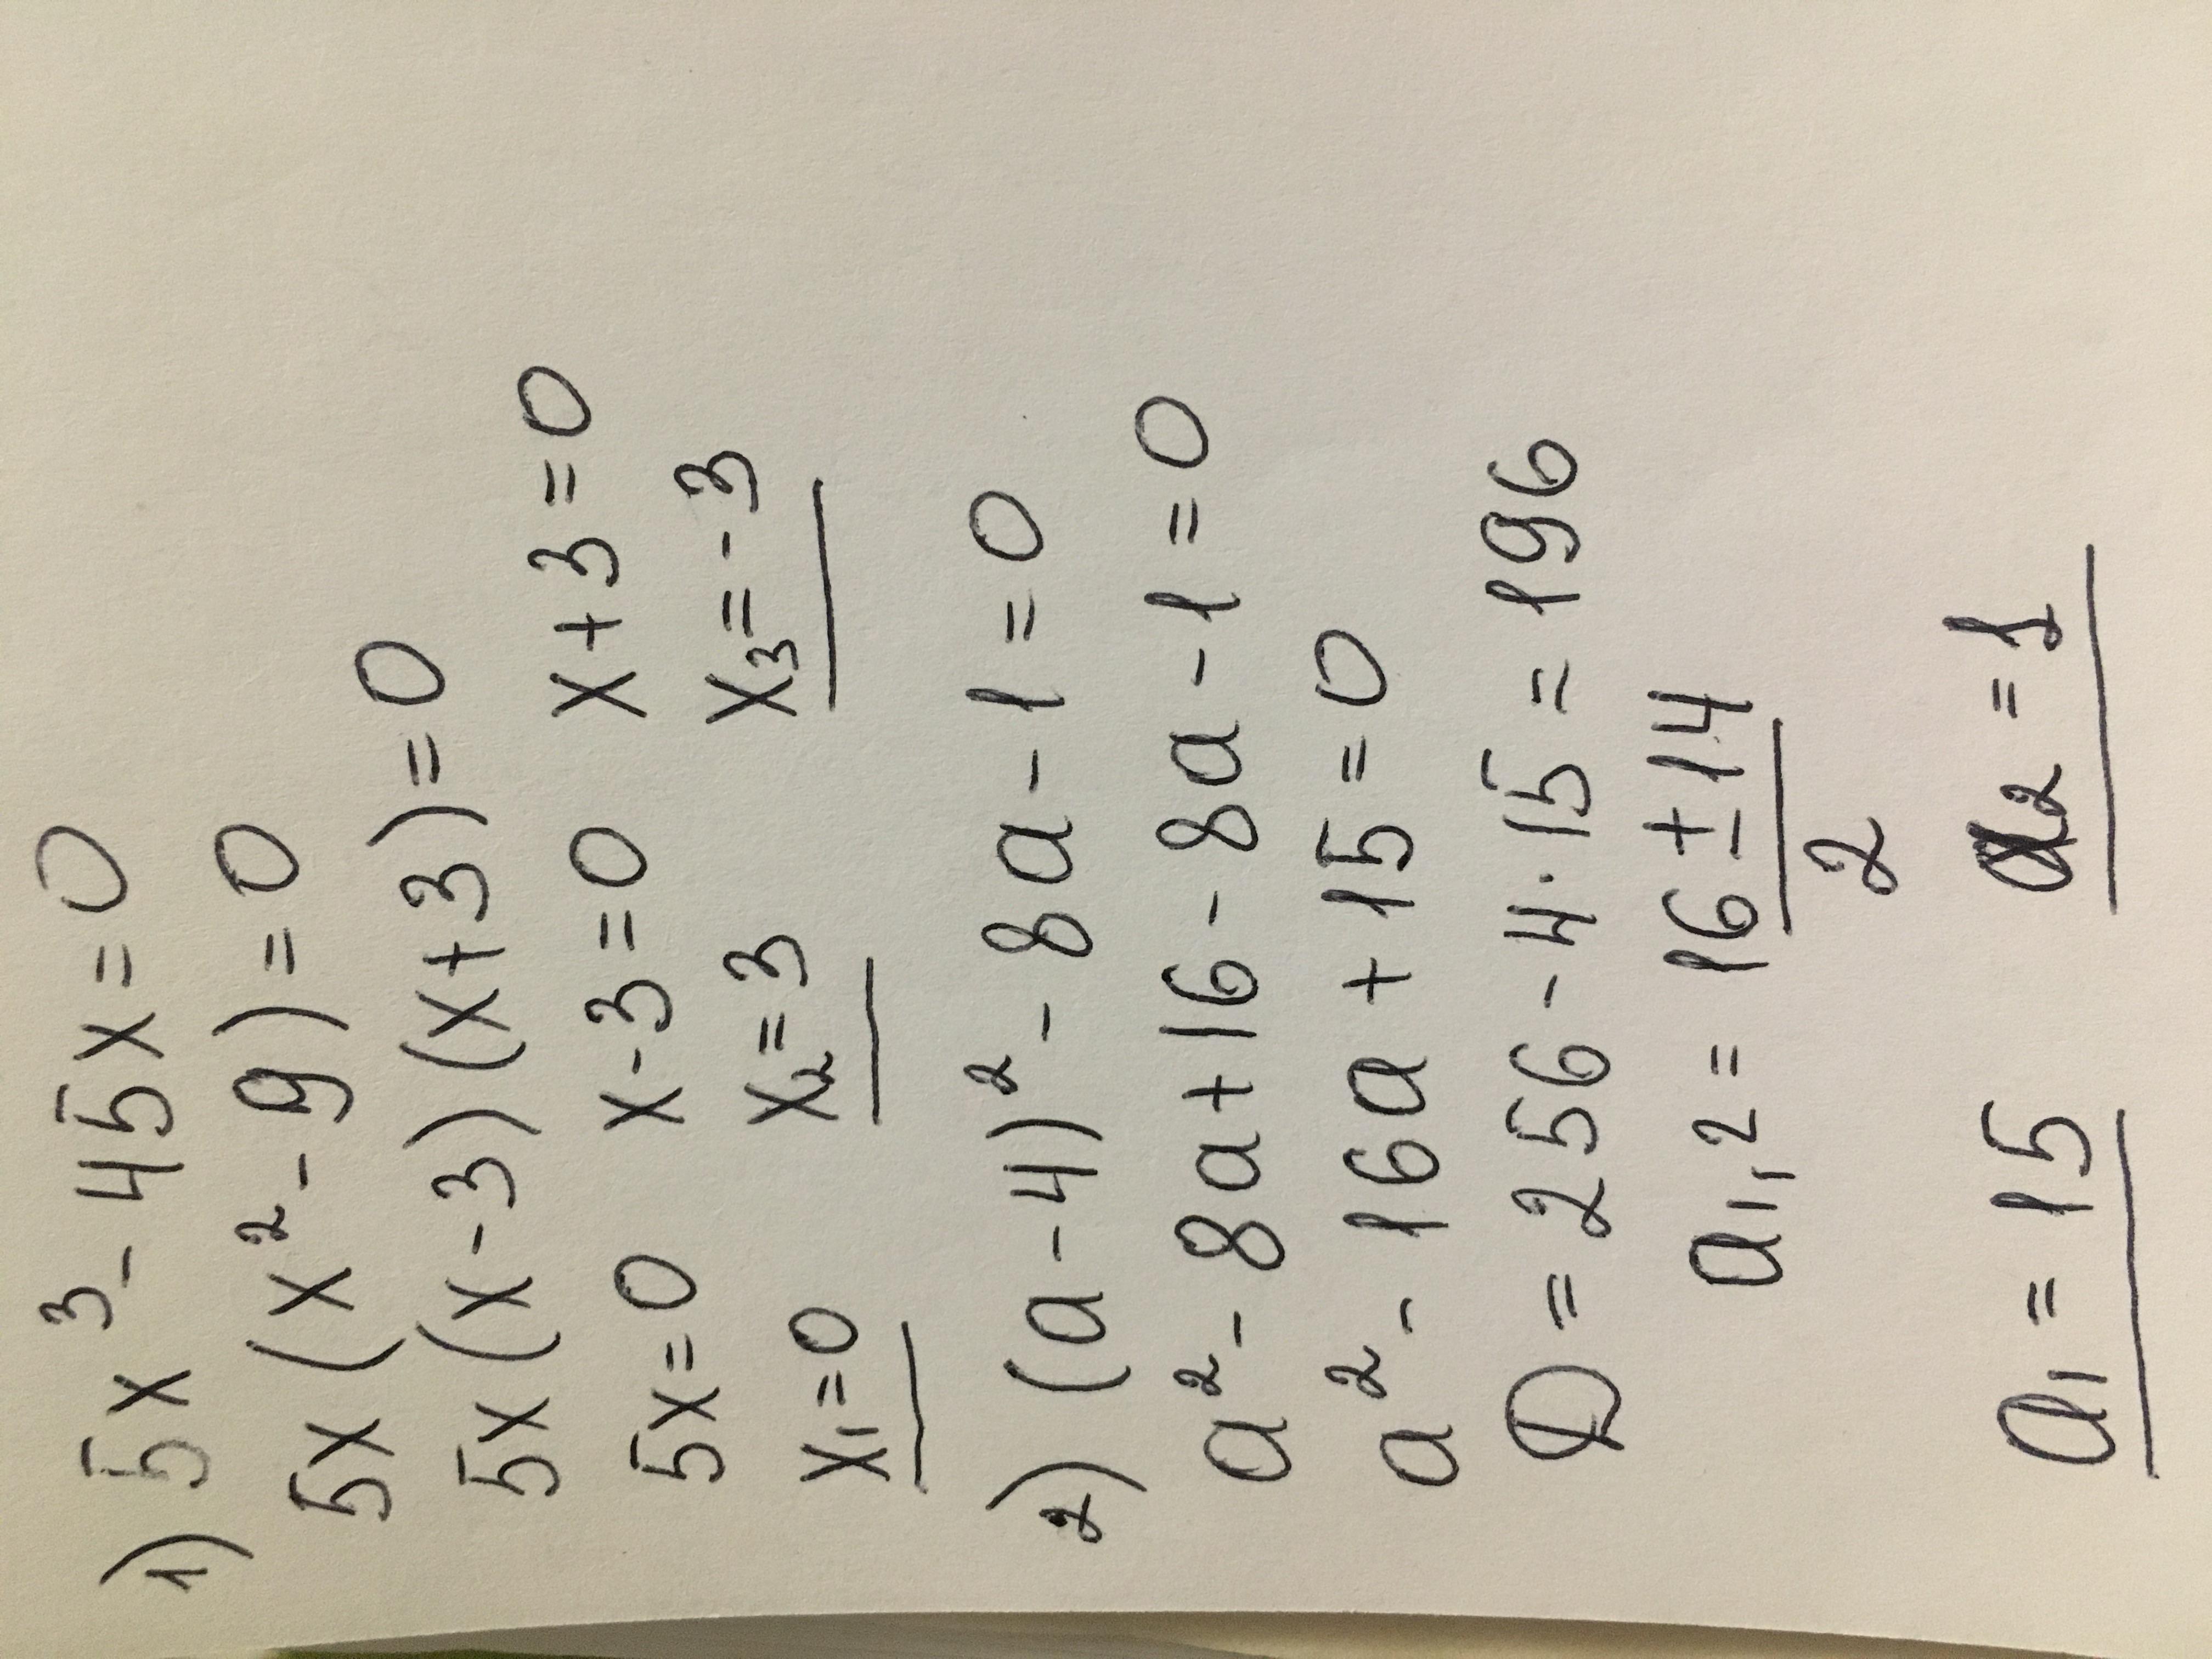 1) 5x³ - 45x = 0
5x(x² - 9) = 0
5x(x - 3)(x + 3) = 0
5x = 0 x - 3 = 0 x + 3 = 0
x₁ = 0 x₂ = 3 x₃ = - 3
2) (a - 4)² - 8a - 1 = 0
a² - 8a + 16 - 8a - 1 = 0
a² - 16a + 15 = 0
D = 256 - 4 · 15 = 196
a₁,₂ = (16 ± 14)/2
a₁ = 15 a₂ = 1